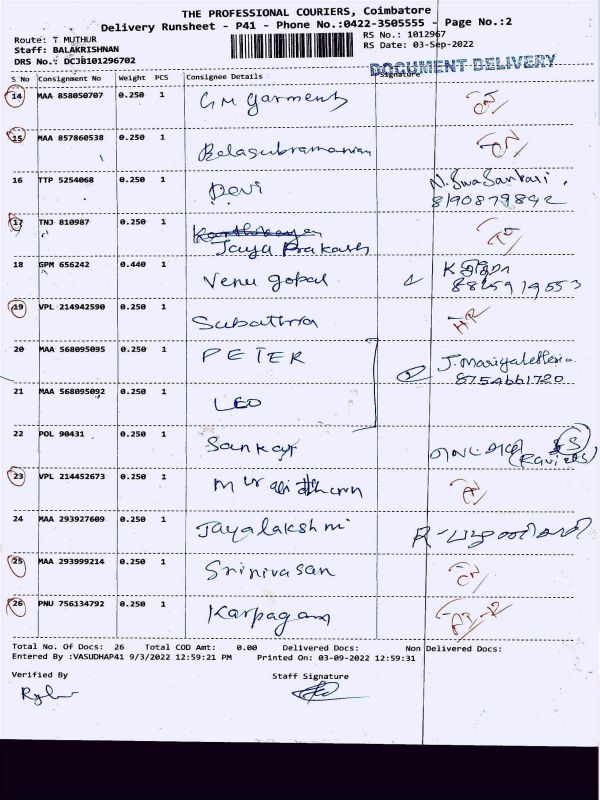 THE PROFESSIONAL COURIERS, Coimbatore
Delivery Runsheet - P41 - Phone No.:0422-3505555 - Page No.:2
Route: T MUTHUR
RS No.: 1012967
Staff: BALAKRISHNAN
RS Date: 03-Sep-2022
DRS No.: DCJB101296702
DOCUMENT DELIVERY
S No Consignment No Weight PCS Consignee Details Signature
14 MAA 858050707 0.250 1 G M Garments
15 MAA 857860538 0.250 1 Balasubramanian
16 TTP 5254068 0.250 1 Devi N. Siva Sankari.
8190879842
17 TNJ 810987 0.250 1
Jaya Prakash
18 GPM 656242 0.440 1 Venu gopal
19 VPL 214942590 0.250 1 Subathra
20 MAA 568095095 0.250 1 PETER
8754661720
21 MAA 568095092 0.250 1 LEO
22 POL 90431 0.250 1 Sankar
23 VPL 214452673 0.250 1 Muralidharan
24 MAA 293927609 0.250 1 Jayalakshmi
25 MAA 293999214 0.250 1 Srinivasan
26 PNU 756134792 0.250 1 Karpagam
Total No. Of Docs: 26 Total COD Amt: 0.00 Delivered Docs: Non Delivered Docs:
Entered By :VASUDHAP41 9/3/2022 12:59:21 PM Printed On: 03-09-2022 12:59:31
Verified By Staff Signature